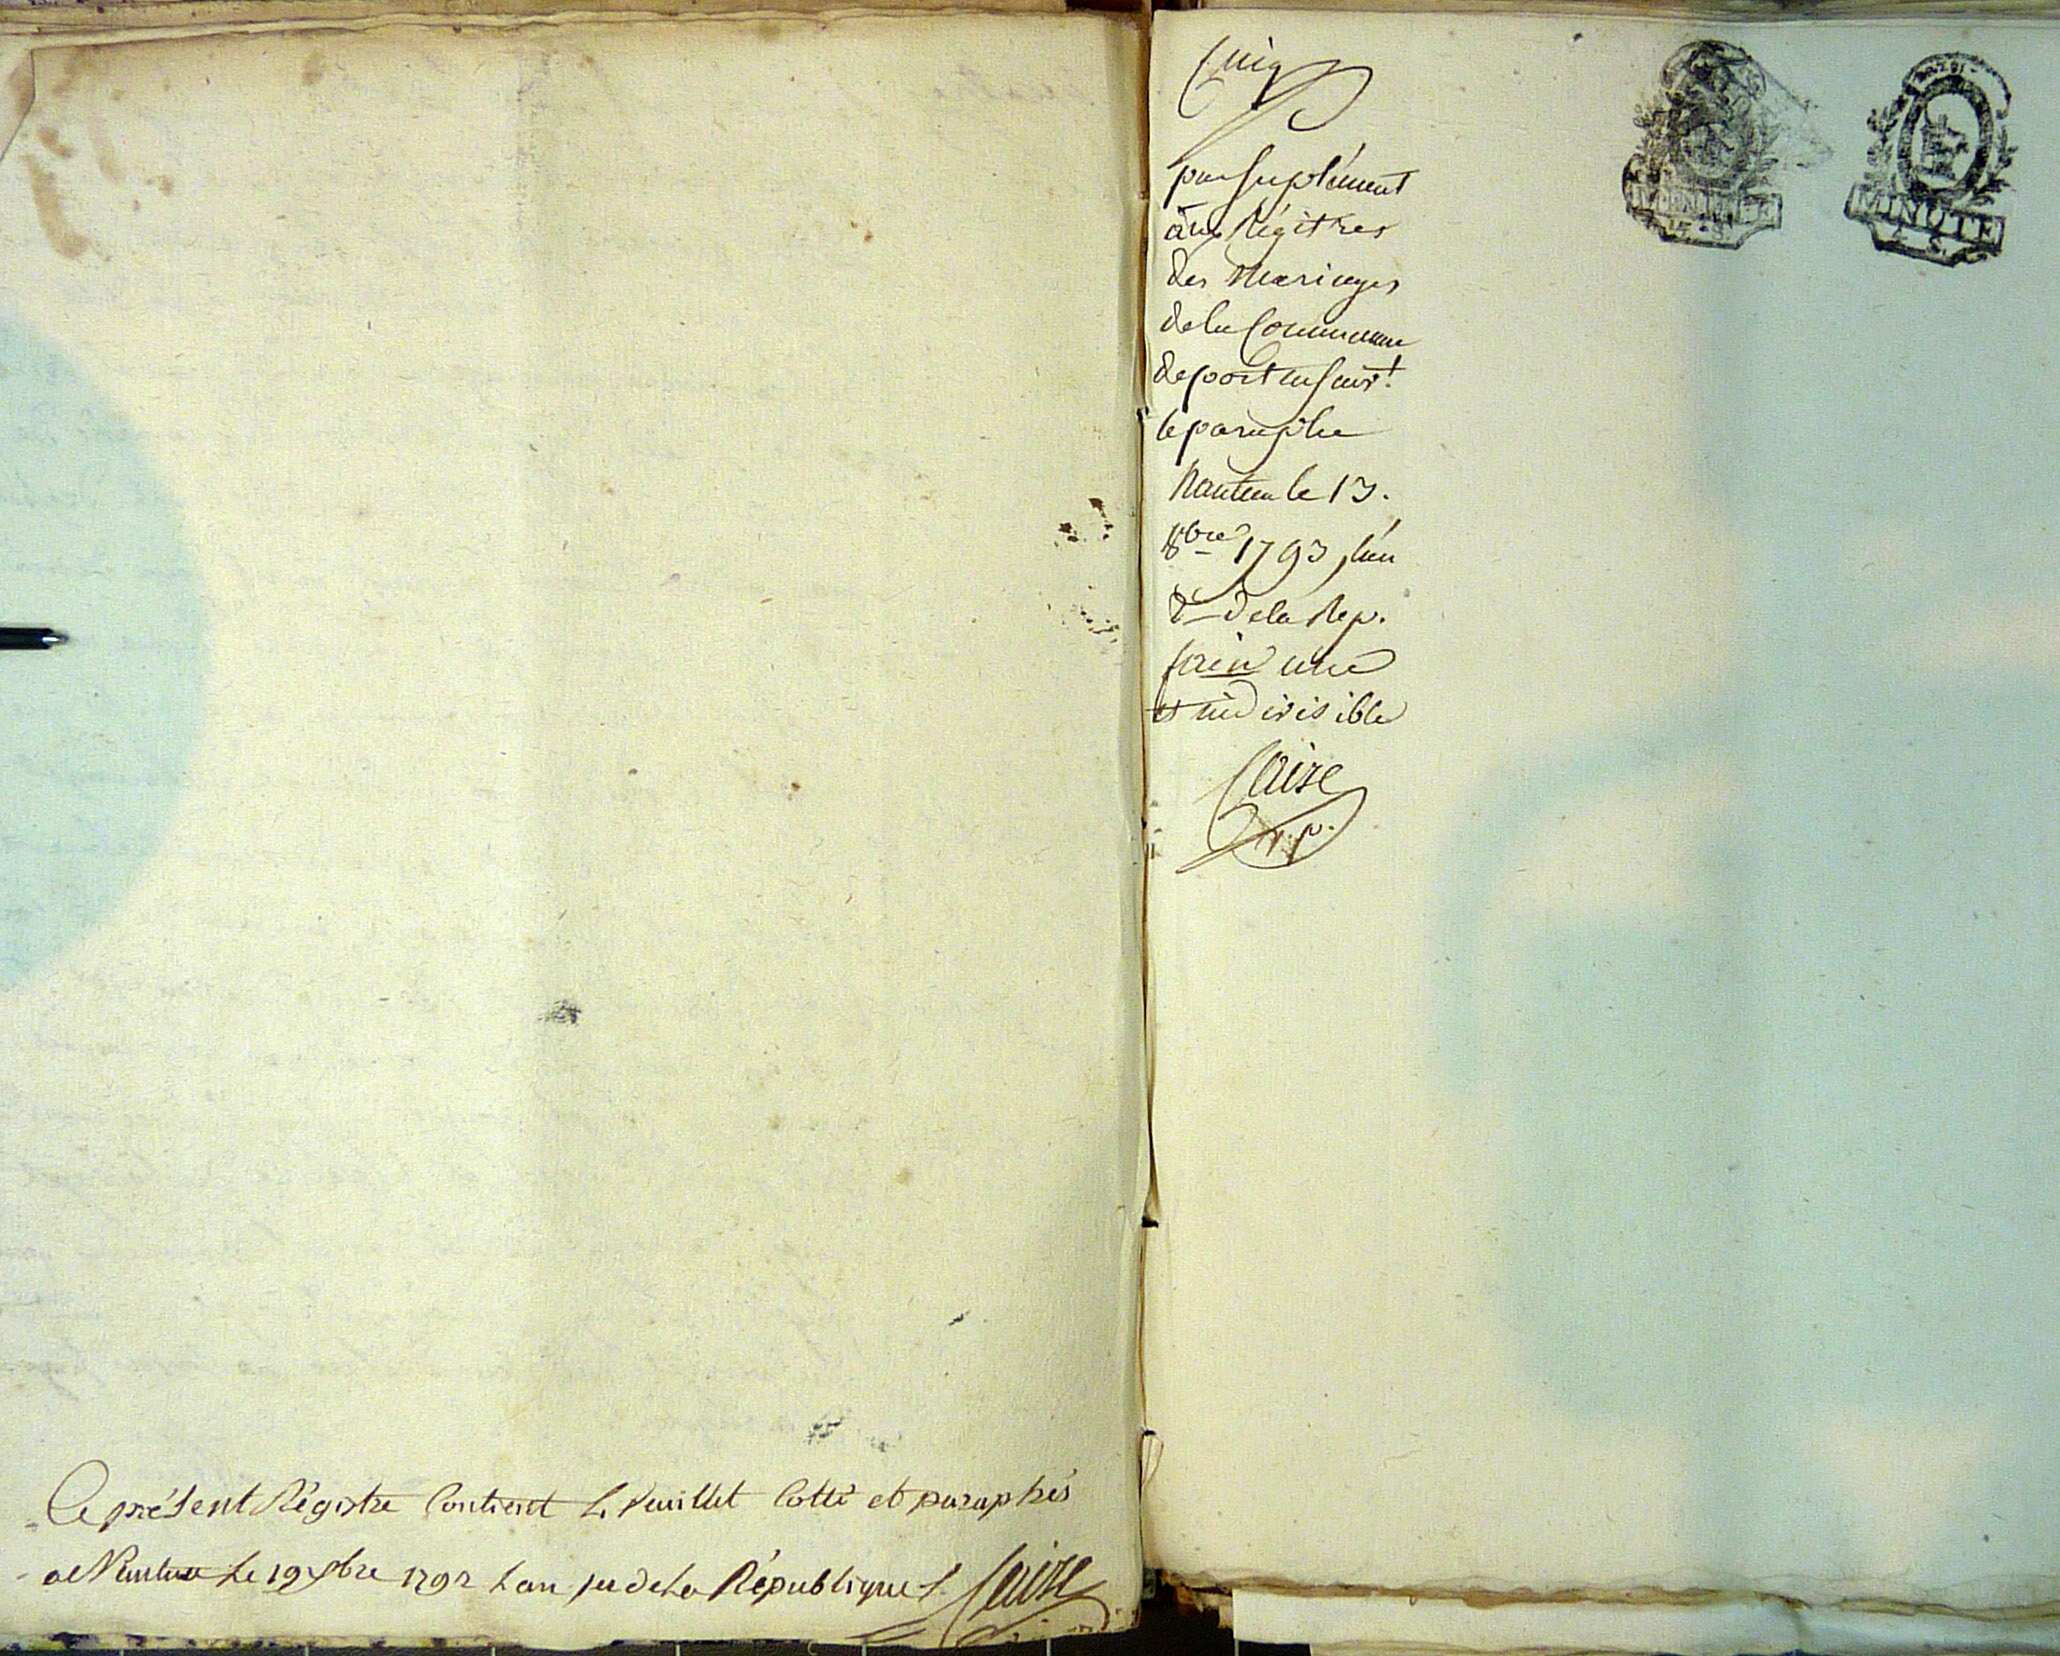 Ce présent Régistre Contient 4 feuillet Cotté et paraphés
a Nantua Le 19 xbre 1792 Lan 1er de La République f.
Caire
Cinq
par suplément
aux Régitres
des Mariages
de la Commune
de port en suiv.t
le paraphe
Nantua le 13.
8bre 1793 l'an
2 de la Rep.
frein une
et indivisible
Caire
MINUTE